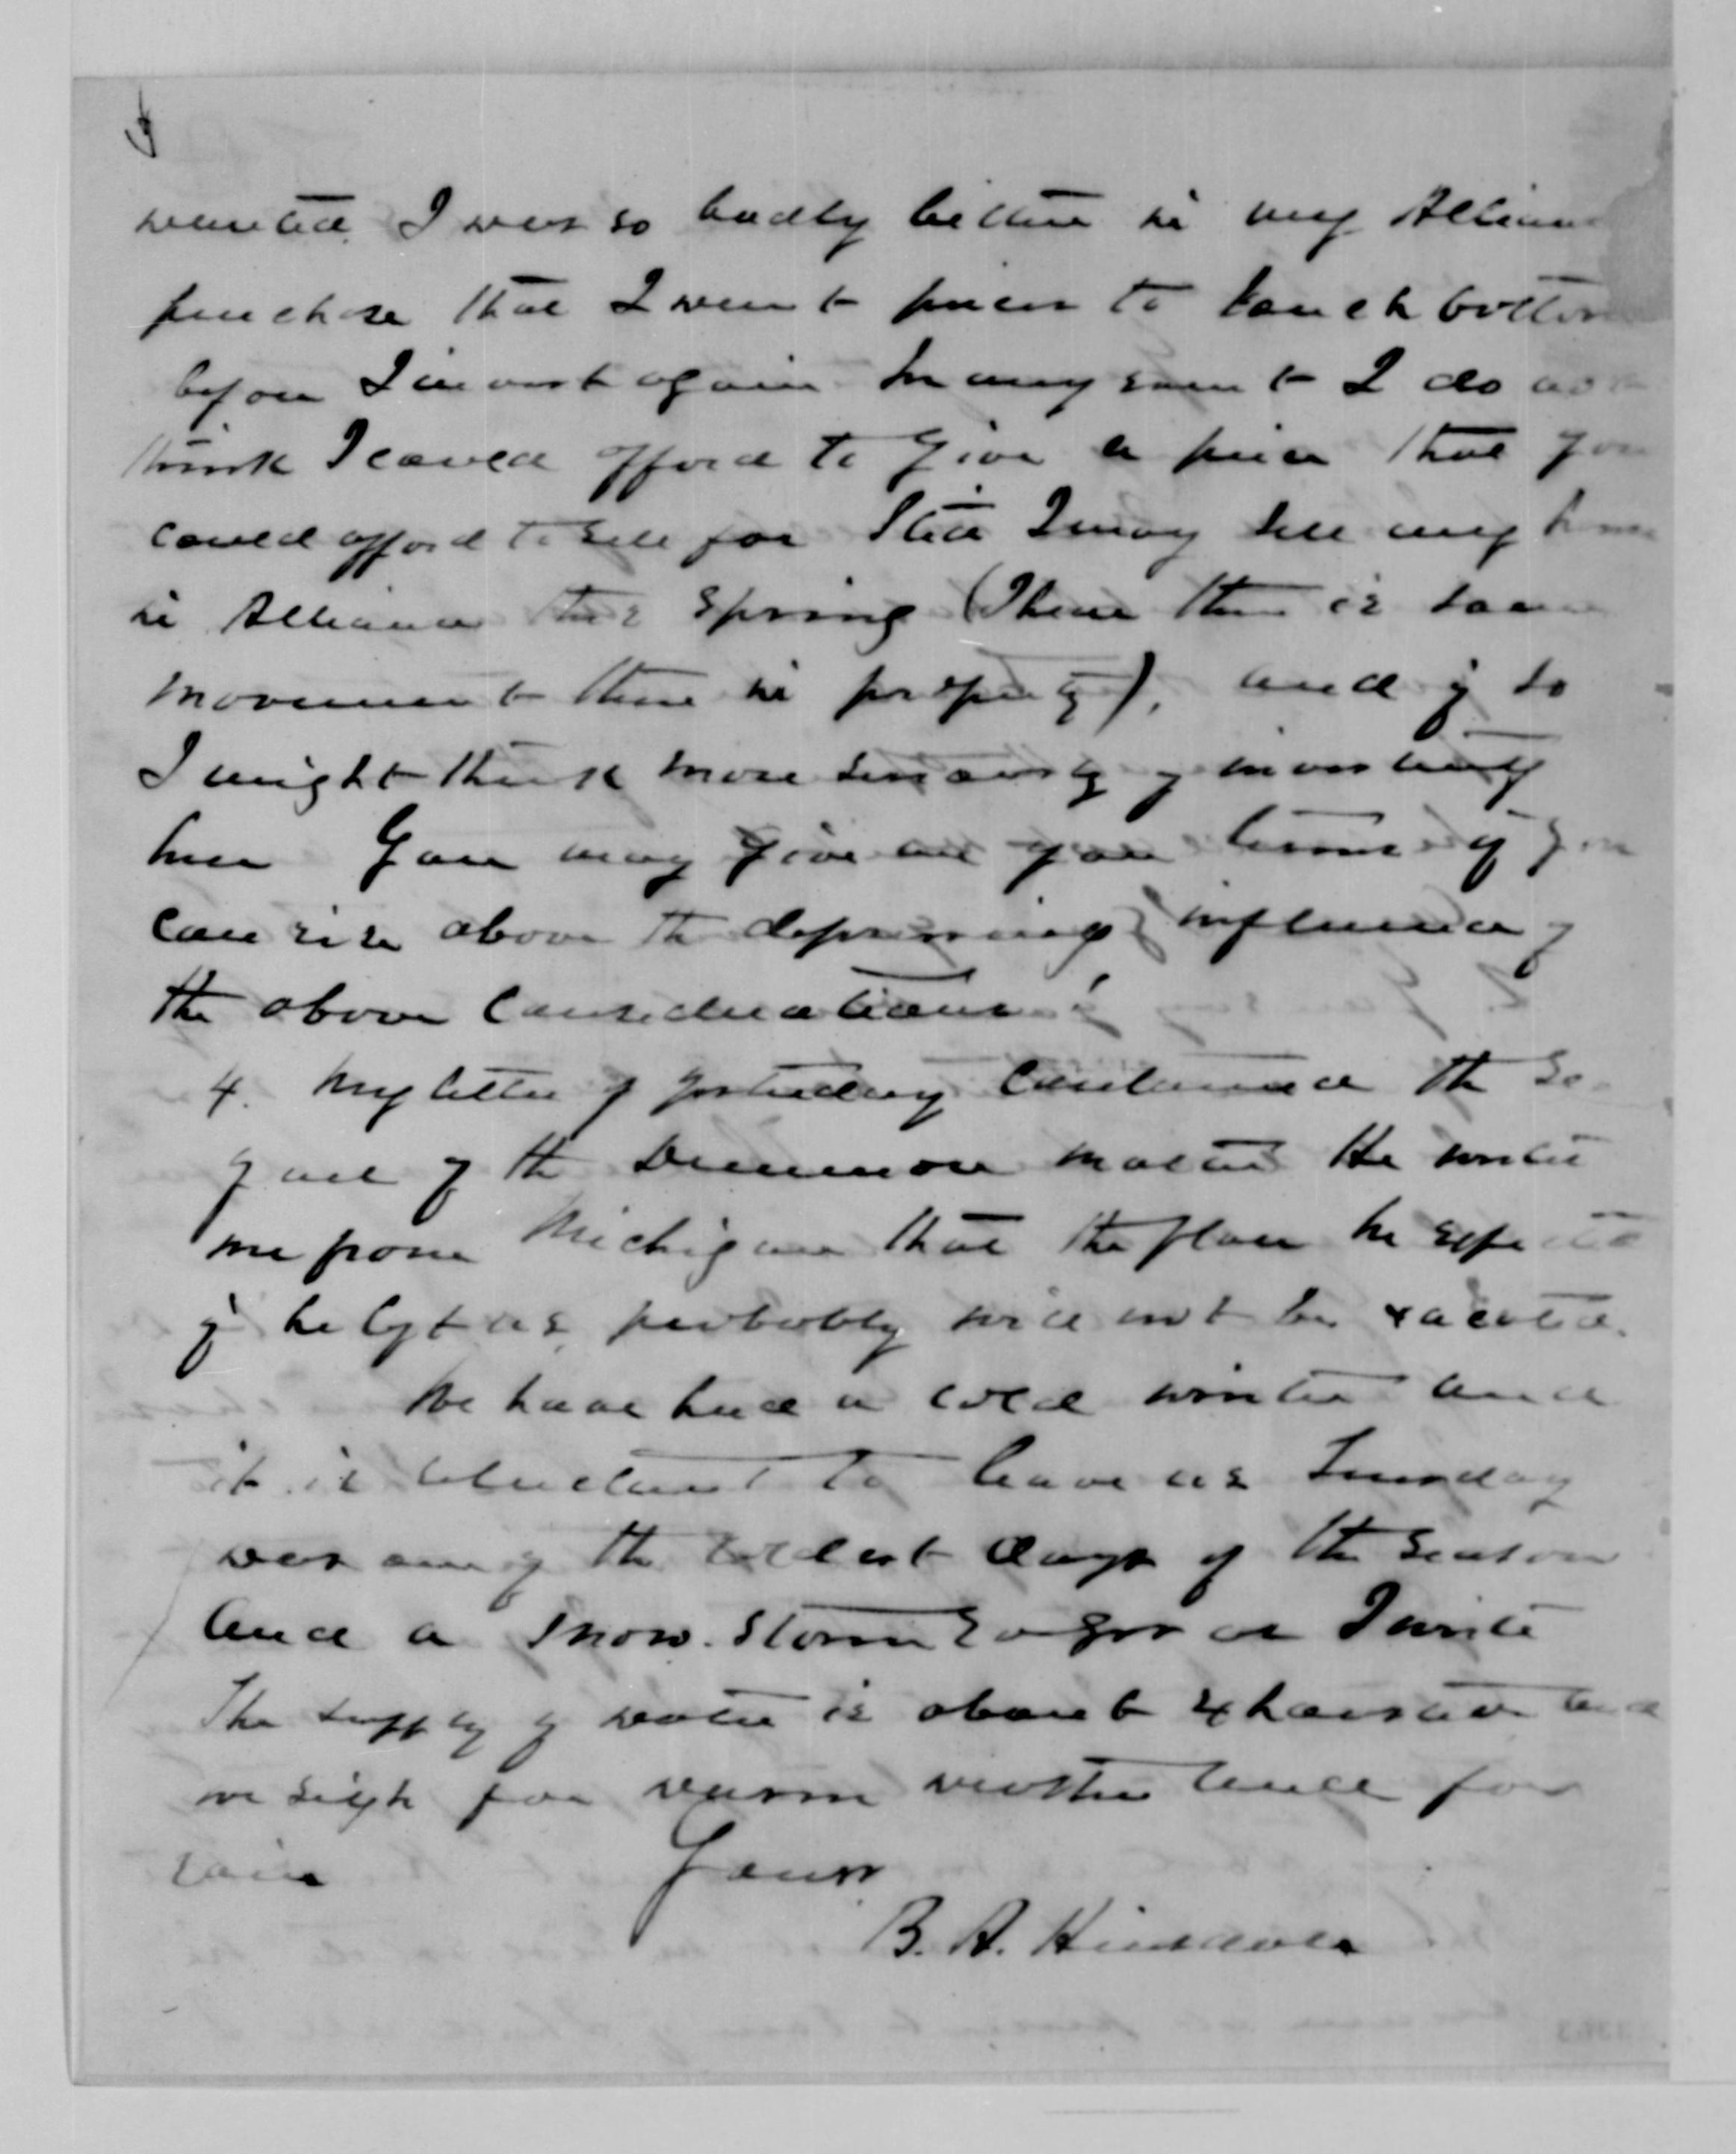 4
wanted. I was so badly bitten in my Alliance
purchase that I want prices to touch bottom
before I invest again. In any event I do not
think I could afford to give a price that you
could afford to sell for. Still I may sell my house
in Alliance this Spring (I hear there is some
movement there in property), and if so
I might think more seriously of investing
here. You may give me your terms if you
can rise above the depressing influence of
the above considerations!
4. My letter of yesterday contained the
of the Dimmon matter. He writes
me from Michigan that the place he expected
if he left us, probably will not be vacated.
We have had a cold winter and
it is reluctant to leave us. Sunday
was one of the coldest days of the season
and a snow-storm rages as I write
The supply of water is about exhausted and
we sigh for warm weather and for
rain
Yours
B. A. Hinsdale